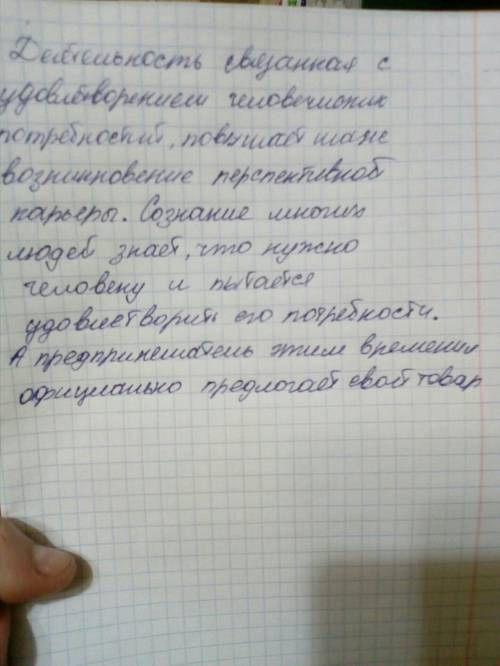 Деятельность связанная с
удовлетворением человеческих
потребностей, повышает шанс
возникновение перспективной
карьеры. Сознание многих
людей знает, что нужно
человеку и пытается
удовлетворить его потребности.
А предпринематель этим временем
официально предлогает свой товар